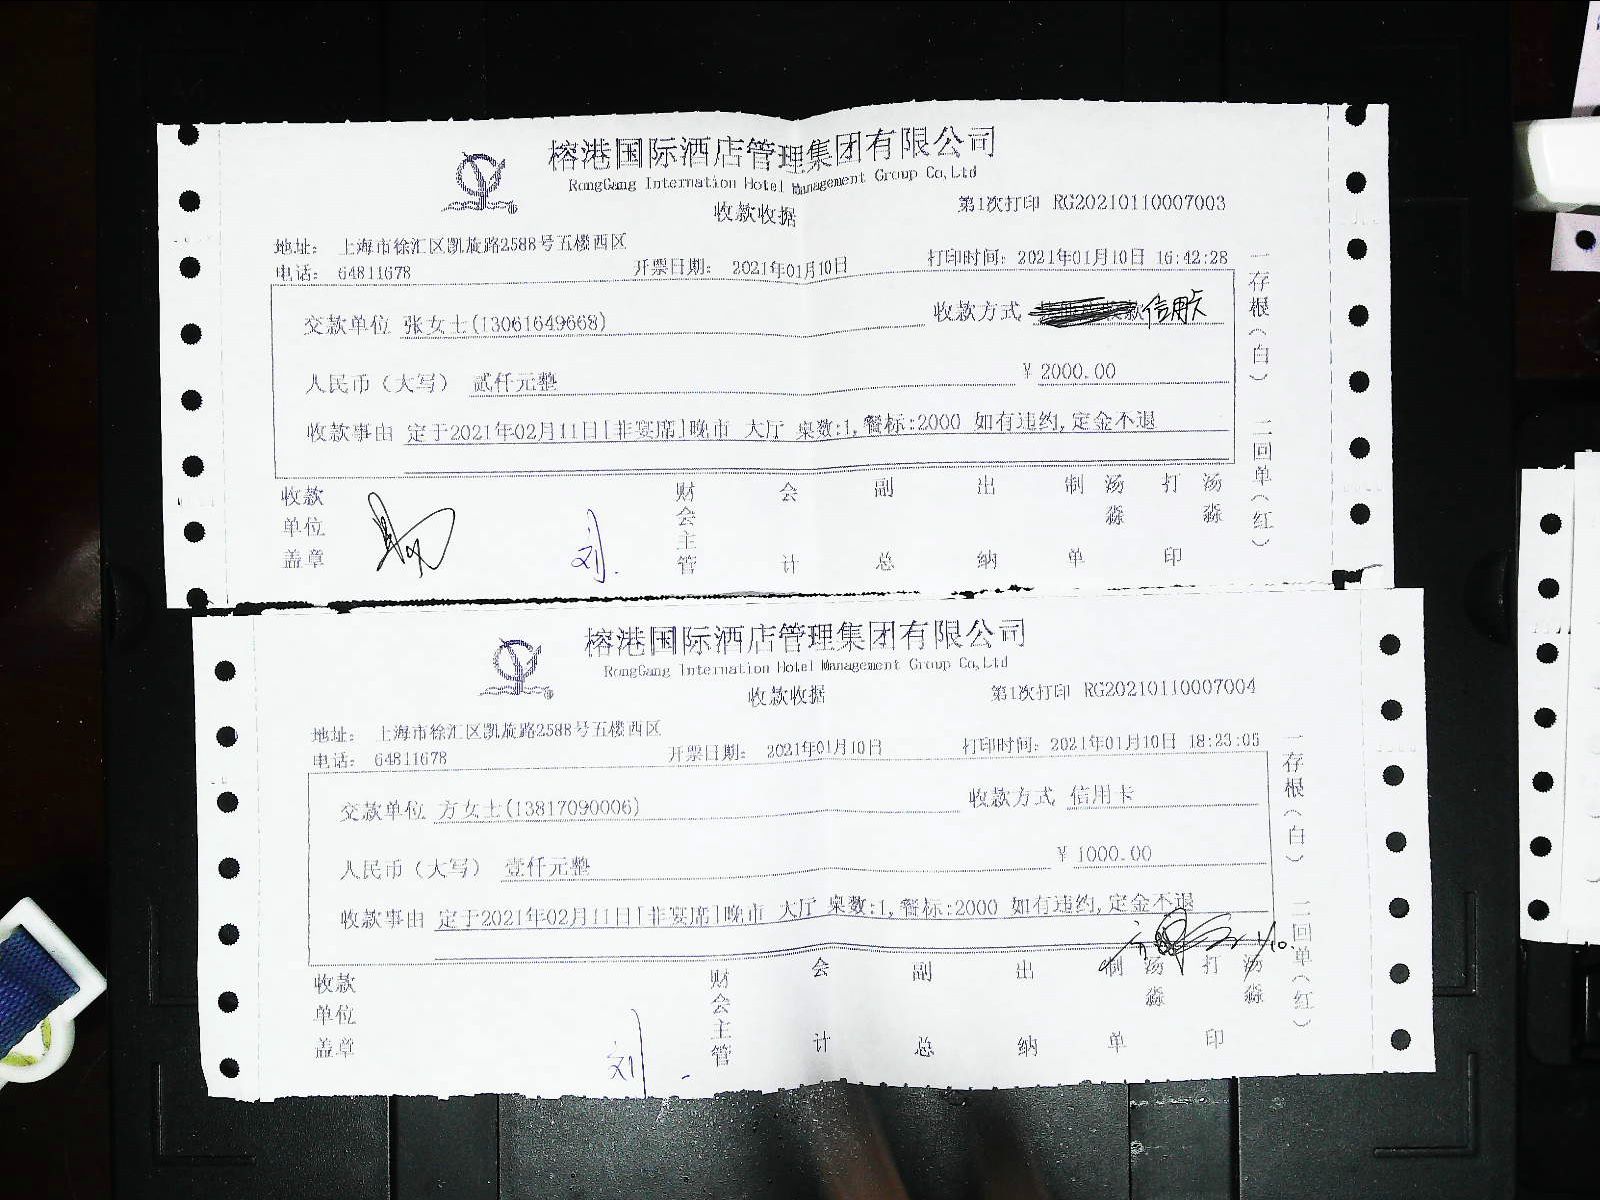 榕港国际酒店管理集团有限公司
RongGang Internation Hotel Management Group Co,Ltd
收款收据
第1次打印 RG20210110007003
地址： 上海市徐汇区凯旋路2588号五楼西区
电话： 64811678
开票日期： 2021年01月10日
打印时间：2021年01月10日 16:42:28
交款单位 张女士(13061649668)
收款方式 信用卡
人民币（大写） 贰仟元整
¥ 2000.00
收款事由 定于2021年02月11日[非宴席]晚市 大厅 桌数:1,餐标:2000 如有违约,定金不退
收款单位盖章
刘
财会主管
会计
副总
出纳
制单
汤淼
打印
汤淼
一存根（白） 二回单（红）
榕港国际酒店管理集团有限公司
RongGang Internation Hotel Management Group Co,Ltd
收款收据
第1次打印 RG20210110007004
地址： 上海市徐汇区凯旋路2588号五楼西区
电话： 64811678
开票日期： 2021年01月10日
打印时间：2021年01月10日 18:23:05
交款单位 方女士(13817090006)
收款方式 信用卡
人民币（大写） 壹仟元整
¥ 1000.00
收款事由 定于2021年02月11日[非宴席]晚市 大厅 桌数:1,餐标:2000 如有违约,定金不退
1/10.
收款单位盖章
刘
财会主管
会计
副总
出纳
制单
汤淼
打印
汤淼
一存根（白） 二回单（红）